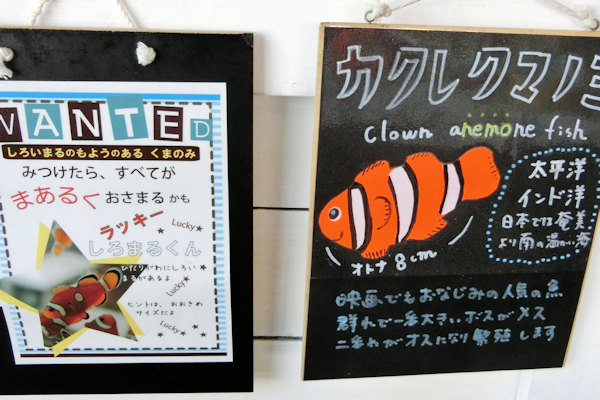 WANTED
しろいまるのもようのある くまのみ
みつけたら、すべてが
まあるくおさまるかも
ラッキー
Lucky★
しろまるくん
ひだりがわにしろい
まるがあるよ
Lucky★
ヒントは、おおきめ
サイズだよ
Lucky★
カクレクマノミ
clown anemone fish
太平洋
インド洋
日本では奄美
より南の温かい海
オトナ 8cm
映画でもおなじみの人気の魚
群れで一番大きいボスがメス
二番れがオスになり繁殖します